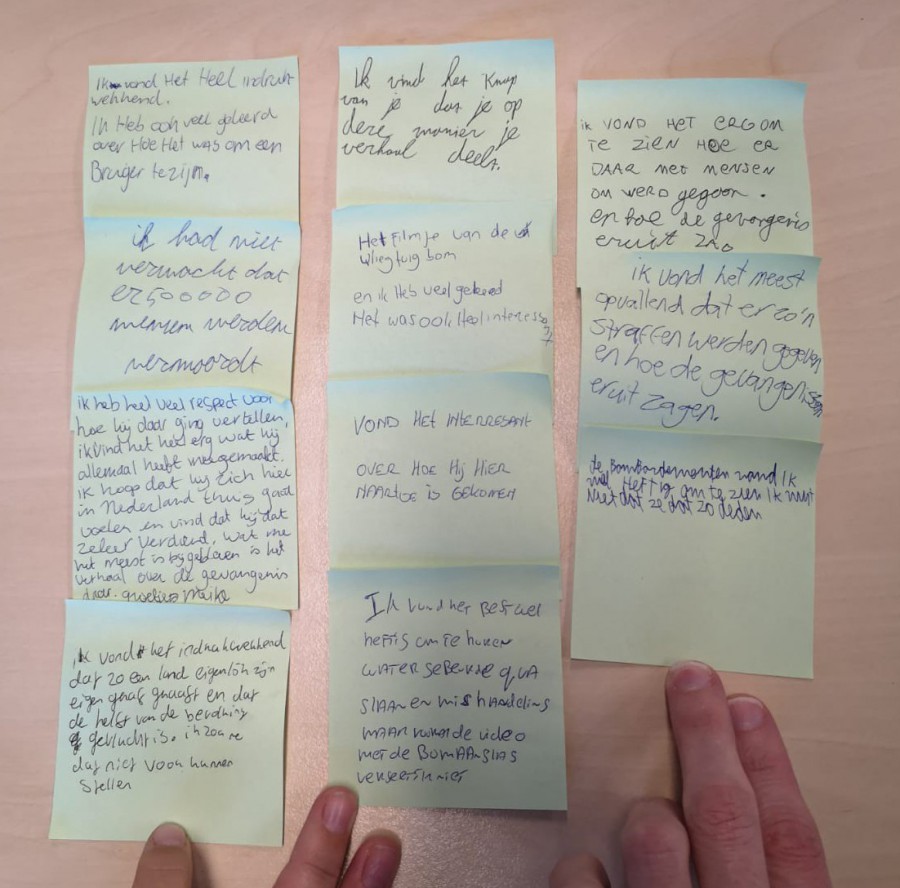 Ik vond Het Heel indruk
wekkend.
Ik Heb ook veel geleerd
over Hoe Het was om een
Bruger te zijn.
ik had niet
verwacht dat
er 500000
mensen werden
vermoordt
ik heb heel veel respect voor
hoe hij daar ging vertellen,
ik vind het heel erg wat hij
allemaal heeft meegemaakt.
ik hoop dat hij zich hier
in Nederland thuis gaat
voelen en vind dat hij dat
zeker verdiend, wat me
het meest is bijgebleven is het
verhaal over de gevangenis
daar. groetjes Maike
ik vond het indrukwekkend
dat zo een land eigenlijk zijn
eigen graf graaft en dat
de helft van de bevolking
gevlucht is. ik zou me
dat niet voor kunnen
stellen
Ik vind het knap
van je dat je op
deze manier je
verhaal deelt.
Het Filmtje van de
vliegtuig bom
en ik Heb veel geleerd
Het was ook Heel interessa
VOND HET INTERESANT
OVER HOE HIJ HIER
NAARTOE IS GEKOMEN
Ik vond het Best wel
heftig om te horen
WAT ER GEBEURDE QUA
SLAAN en mishandeling
maar vooral de video
met de Bomaanslag
ik VOND HET ERG OM
TE ZIEN HOE ER
DAAR MET MENSEN
OM WERD gegaan.
en hoe de gevangenis
eruit zag
ik vond het meest
opvallend dat er zo'n
straffen werden gegeven
en hoe de gevangenissen
eruit zagen.
de Bombardementen vand ik
wel Heftig om te zien Ik wist
Niet dat ze dat zo deden